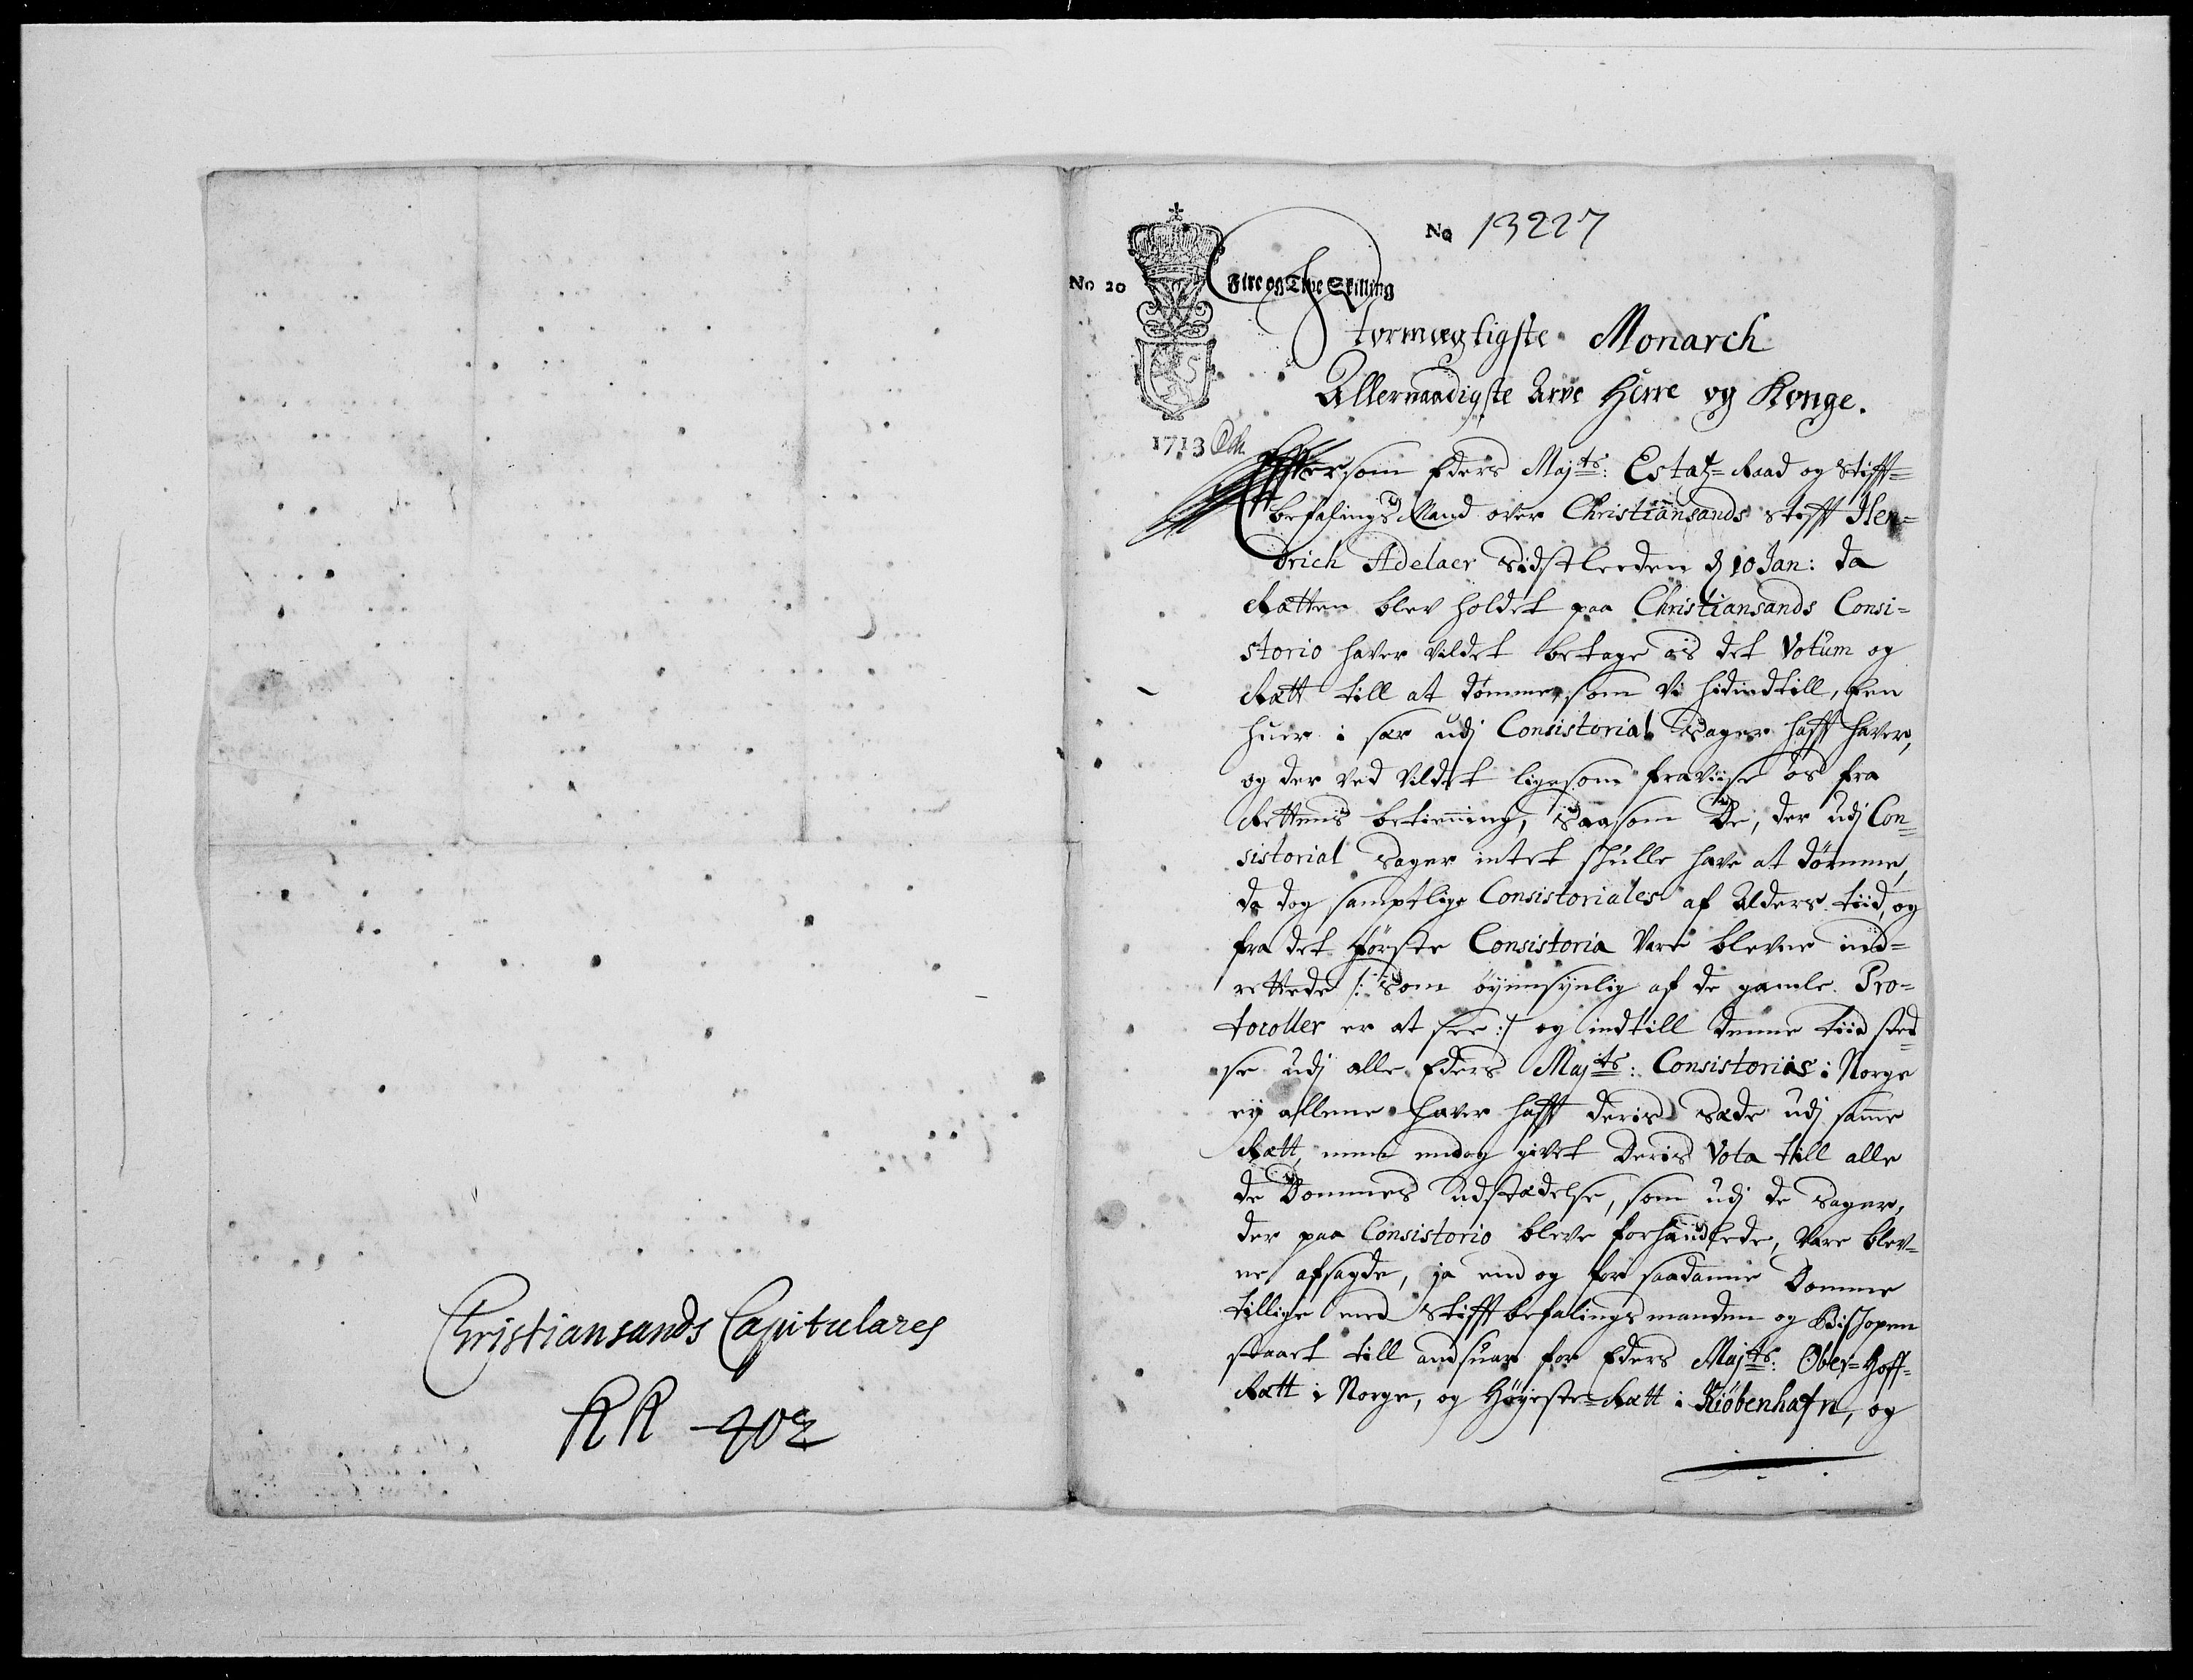 Christiansands Capitulares
No 13227
No 20
Fire og Tyve Skilling
Stormægtigste Monarch
Allernaadigste Arve Herre og Konge.
1713
Eftersom Eders Majts: Estatz-Raad og Stifft=
befalings Mand over Christiansands Stifft Hen=
drich Adelaer Sidstleeden d 10 Jan: da
Rætten blev holdet paa Christiansands Consi=
storio haver vildet betage os det Votum og
Rætt till at dømme, som Vi hidindtill, een
huer i sær udj Consistorial Sager hafft haver,
og der ved vildet ligesom fraviise os fra
Rettens betienning, saasom De, der udj Con=
sistorial Sager intet skulle have at dømme,
da dog samptlige Consistoriales af Alders tiid, og
fra det første Consistoria vare blevne ind=
rettede /: som øyensynlig af de gamle Pro=
tocoller er at see :/ og indtill denne tiid sted=
se udj alle Eders Majts: Consistoriis i Norge
ey allene haver hafft deris Sæde udj samme
Rætt, men endog givet Deris Vota till alle
de Dommes udstædelse, som udj de Sager,
der paa Consistorio bleve forhandlede, Vare blev=
ne afsagde, ja end og for saadanne Domme
tillige med Stifftbefalingsmanden og Bishopen
staaet till andsuar for Eders Majts: Ober=Hoff=
Rætt i Norge, og Høyeste=Rætt i Kiøbenhafn, og